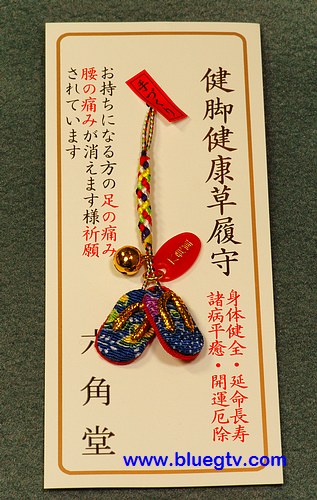 健脚健康草履守
身体健全・延命長寿
諸病平癒・開運厄除
手づくり
お持ちになる方の足の痛み
腰の痛みが消えます様祈願
されています
六角堂
六角堂
www.bluegtv.com